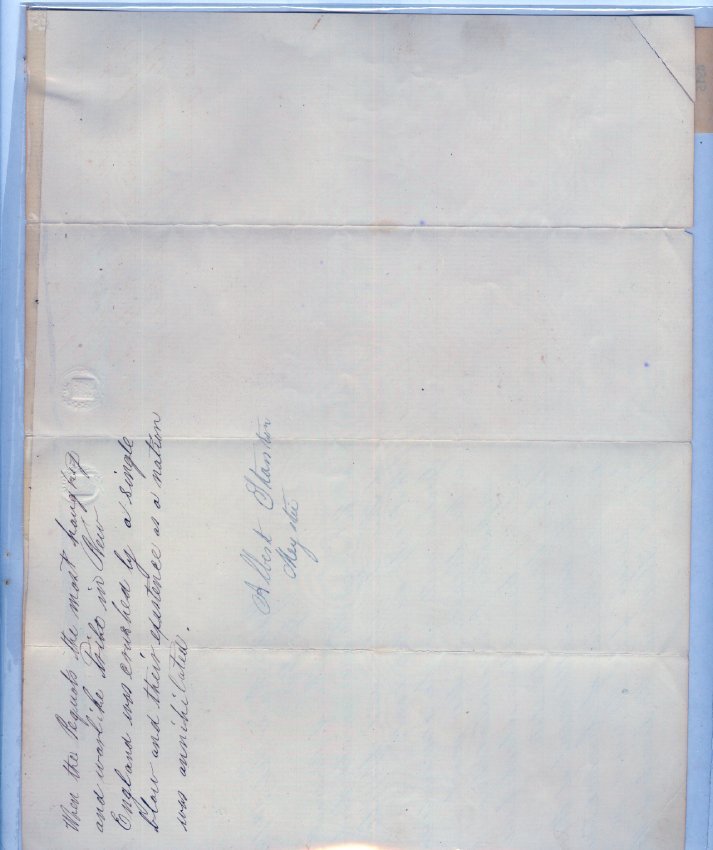 When the Pequots the most haughty
and warlike Tribe in New
England was crushed by a single
blow and their existence as a nation
was annihilated.
Albert